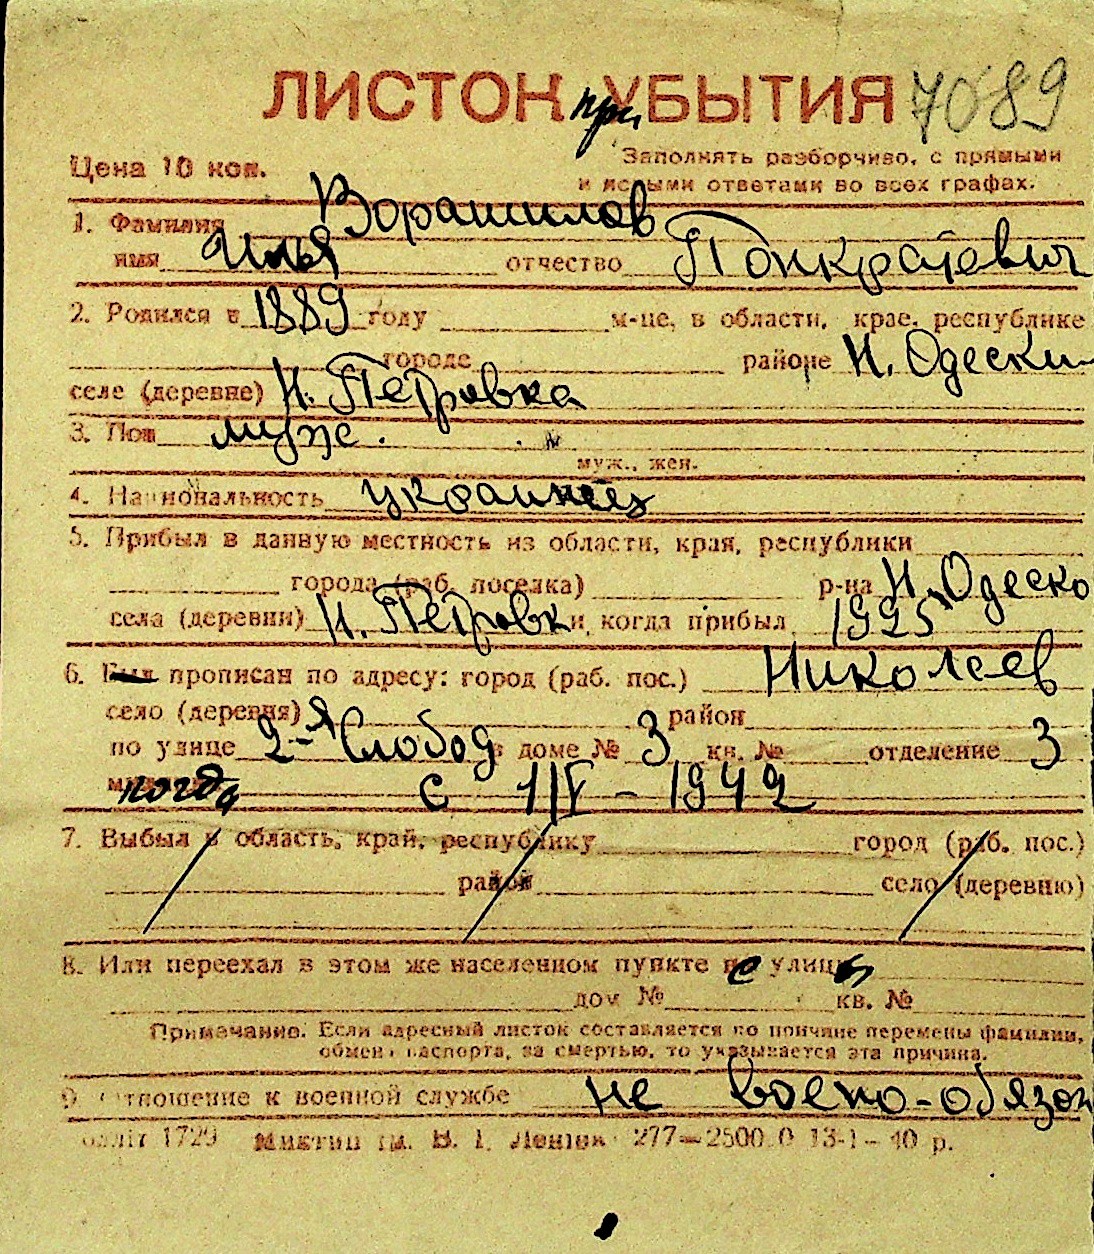 ЛИСТОК при УБЫТИЯ 7089
Цена 10 коп.
Заполнять разборчиво, с прямыми
и ясными ответами во всех графах.
1. Фамилия Ворашилов
имя Илья отчество Понкратевич
2. Родился в 1889 году м-це, в области, крае, республике
городе районе Н. Одески
селе (деревне) Н. Петровка
3. Пол муж.
муж., жен.
4. Национальность украинец
5. Прибыл в данную местность из области, края, республики
города (раб. поселка) р-на Н. Одеско
села (деревни) Н. Петровки, когда прибыл 1925
6. Был прописан по адресу: город (раб. пос.) Николаев
село (деревня) район
по улице 2-я Слобод в доме № 3 кв. № отделение 3
когда с 1/IV - 1942
7. Выбыл в область, край, республику город (раб. пос.)
район село (деревню)
8. Или переехал в этом же населенном пункте с улицы
дом № кв. №
Примечание. Если адресный листок составляется по причине перемены фамилии,
обмена паспорта, за смертью, то указывается эта причина.
9. Отношение к военной службе не воено-обязон
1729 В. І. Леніна 277—2500.0 13-1-40 р.